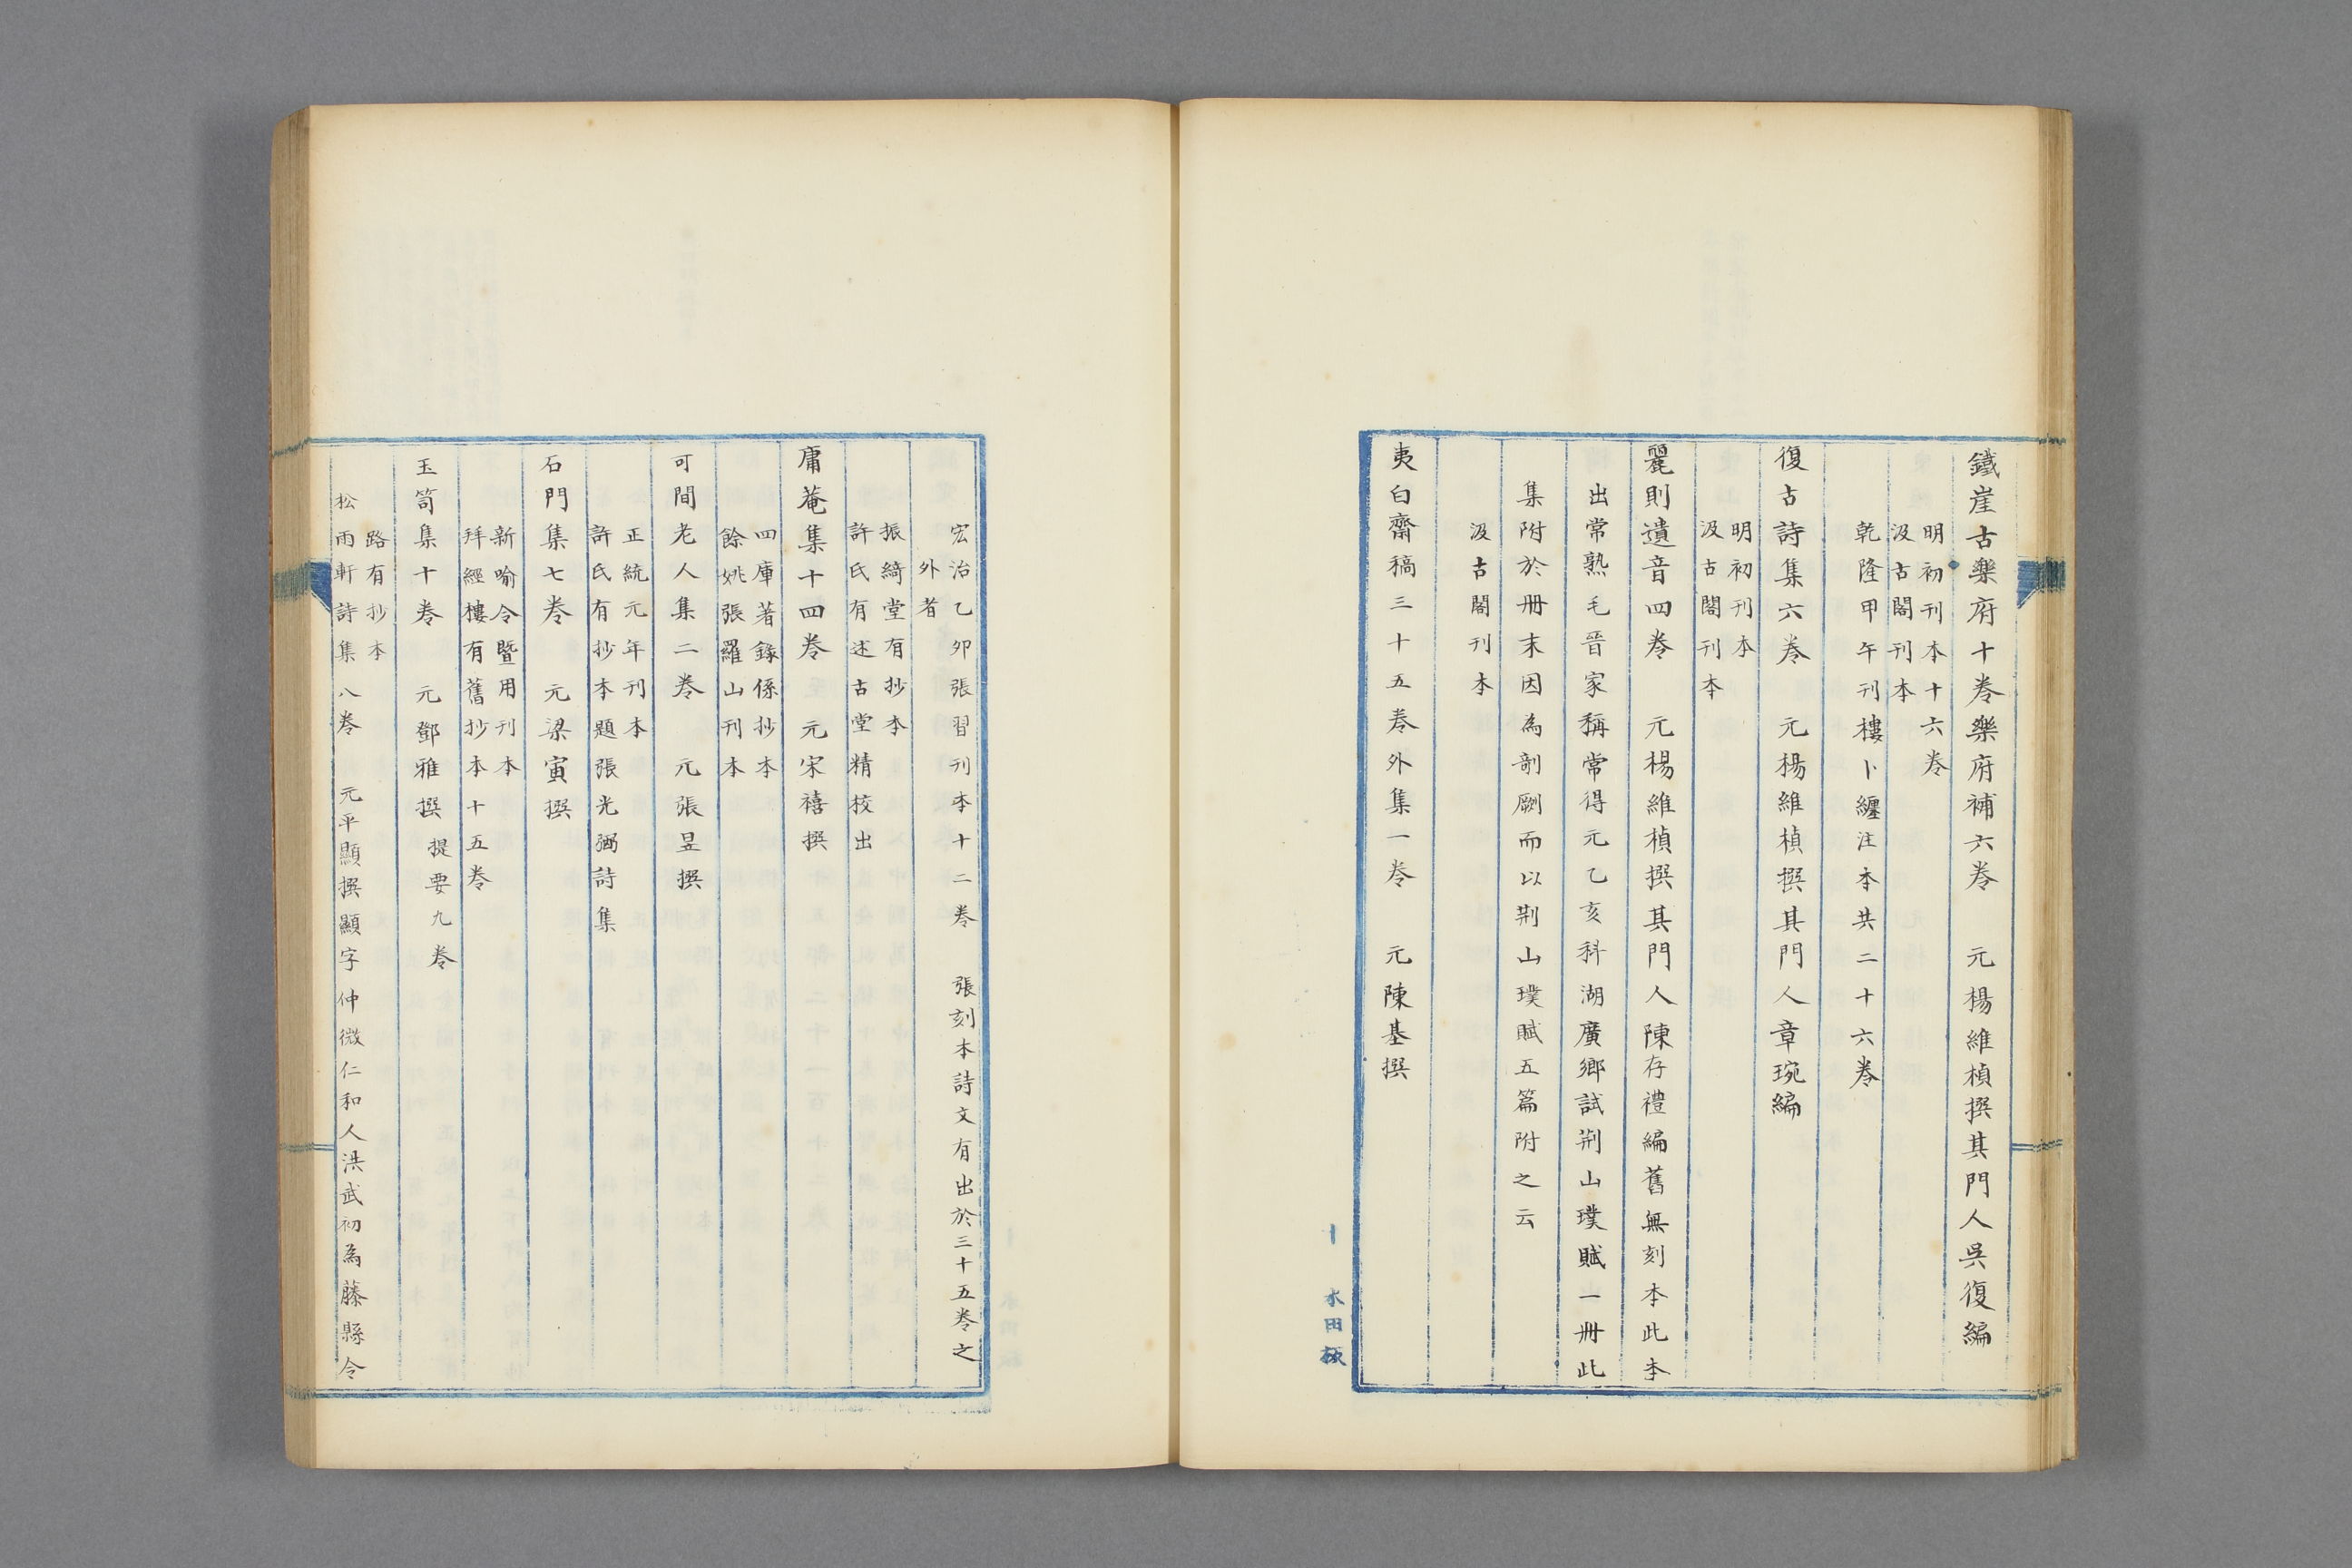 鐵崖古樂府十卷樂府補六卷　元楊維楨撰其門人吳復編
明初刊本十六卷
汲古閣刊本
乾隆甲午刊樓卜纏注本共二十六卷
復古詩集六卷　元楊維楨撰其門人章琬編
明初刊本
汲古閣刊本
麗則遺音四卷　元楊維楨撰其門人陳存禮編舊無刻本此本
出常熟毛晉家稱常得元乙亥科湖廣鄉試荆山璞賦一冊此
集附於冊末因為剞劂而以荆山璞賦五篇附之云
汲古閣刊本
夷白齋稿三十五卷外集一卷　元陳基撰
水田板
宏治乙夘張習刊本十二卷　張刻本詩文有出於三十五卷之
外者
振綺堂有抄本
許氏有述古堂精校出
庸菴集十四卷　元宋禧撰
四庫著錄係抄本
餘姚張羅山刊本
可閒老人集二卷　元張昱撰
正統元年刊本
許氏有抄本題張光弼詩集
石門集七卷　元梁寅撰
新喻令暨用刊本
拜經樓有舊抄本十五卷
玉笥集十卷　元鄧雅撰　提要九卷
路有抄本
松雨軒詩集八卷　元平顯撰顯字仲微仁和人洪武初為藤縣令